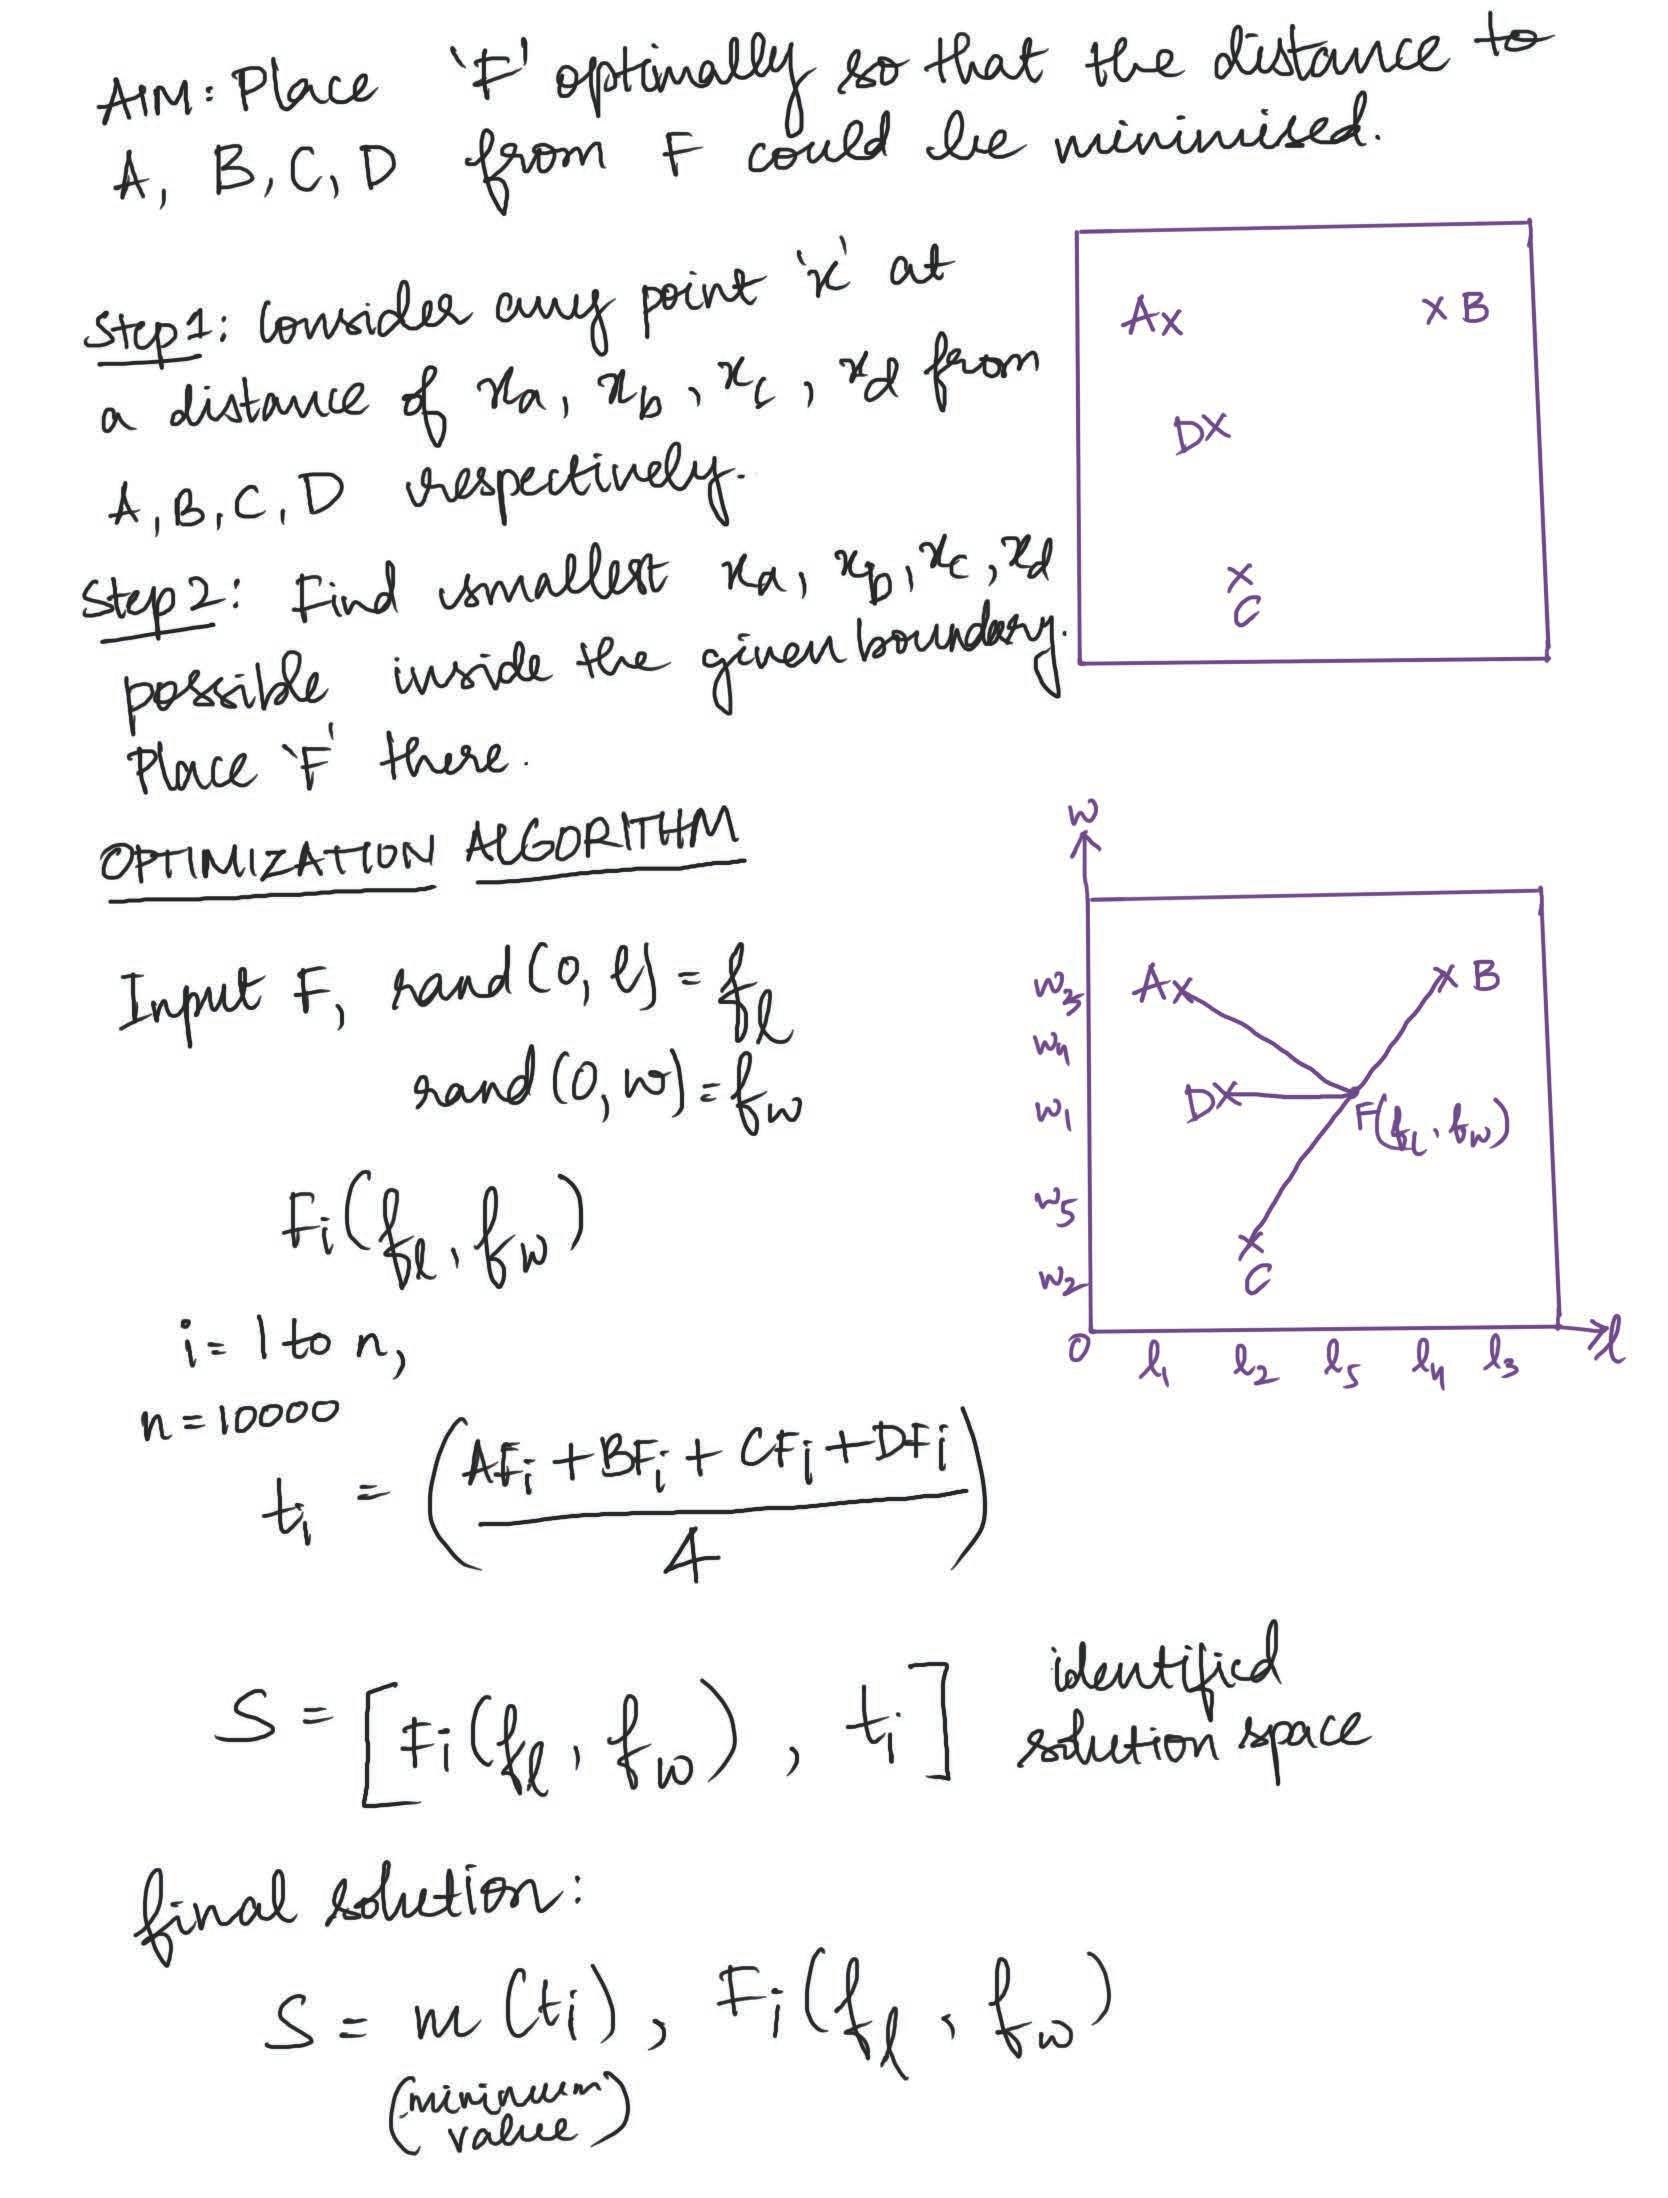 AIM: Place 'F' optimally so that the distance to
A, B, C, D from F could be minimised.
Step1: Consider any point 'x' at
a distance of xa, xb, xc, xd from
A, B, C, D respectively.
Step2: Find smallest xa, xb, xc, xd
possible inside the given boundary.
Place 'F' there.
A x
x B
D X
x
C
OPTIMIZATION ALGORITHM
Input F, rand(0, l) = fl
rand(0, w) = fw
Fi(fl, fw)
i = 1 to n,
n = 10000
ti = (AFi + BFi + CFi + DFi / 4)
w
w3
w4
w1
w5
w2
A x
x B
D X
F(fl, fw)
x
C
0 l1 l2 l5 l4 l3 l
S = [Fi(fl, fw), ti] identified
solution space
final solution:
S = m(ti), Fi(fl, fw)
(minimum
value)